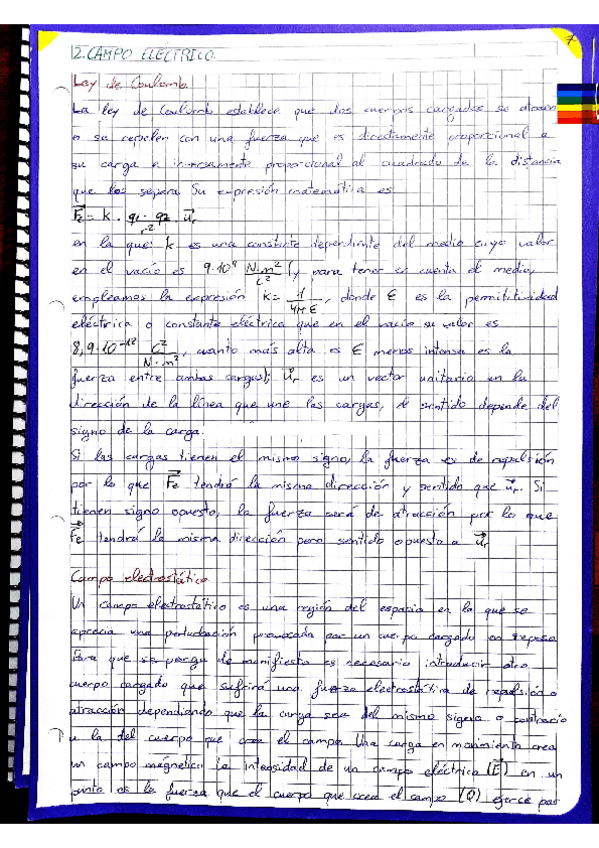 2. CAMPO ELÉCTRICO.
Ley de Coulomb
La ley de Coulomb establece que dos cuerpos cargados se atraen
o se repelen con una fuerza que es directamente proporcional a
su carga e inversamente proporcional al cuadrado de la distancia
que los separa. Su expresión matemática es
F⃗e = k · q1 · q2 / r² · u⃗r
en la que: k es una constante dependiente del medio cuyo valor
en el vacío es 9·10⁹ N·m²/C² (y para tener en cuenta el medio,
empleamos la expresión k = 1/4πε, donde ε es la permitividad
eléctrica o constante eléctrica que en el vacío su valor es
8,9·10⁻¹² C²/N·m², cuanto más alta es ε menos intensa es la
fuerza entre ambas cargas); u⃗r es un vector unitario en la
dirección de la línea que une las cargas, el sentido depende del
signo de la carga.
Si las cargas tienen el mismo signo, la fuerza es de repulsión
por lo que F⃗e tendrá la misma dirección y sentido que u⃗r. Si
tienen signo opuesto, la fuerza será de atracción por lo que
F⃗e tendrá la misma dirección pero sentido opuesto a u⃗r
Campo electrostático
Un campo electrostático es una región del espacio en la que se
aprecia una perturbación provocada por un cuerpo cargado en reposo
Para que se ponga de manifiesto es necesario introducir otro
cuerpo cargado que sufrirá una fuerza electrostática de repulsión o
atracción dependiendo que la carga sea del mismo signo o contrario
a la del cuerpo que crea el campo. Una carga en movimiento crea
un campo magnético. La intensidad de un campo eléctrico (E⃗) en un
punto es la fuerza que el cuerpo que crea el campo (Q) ejerce por